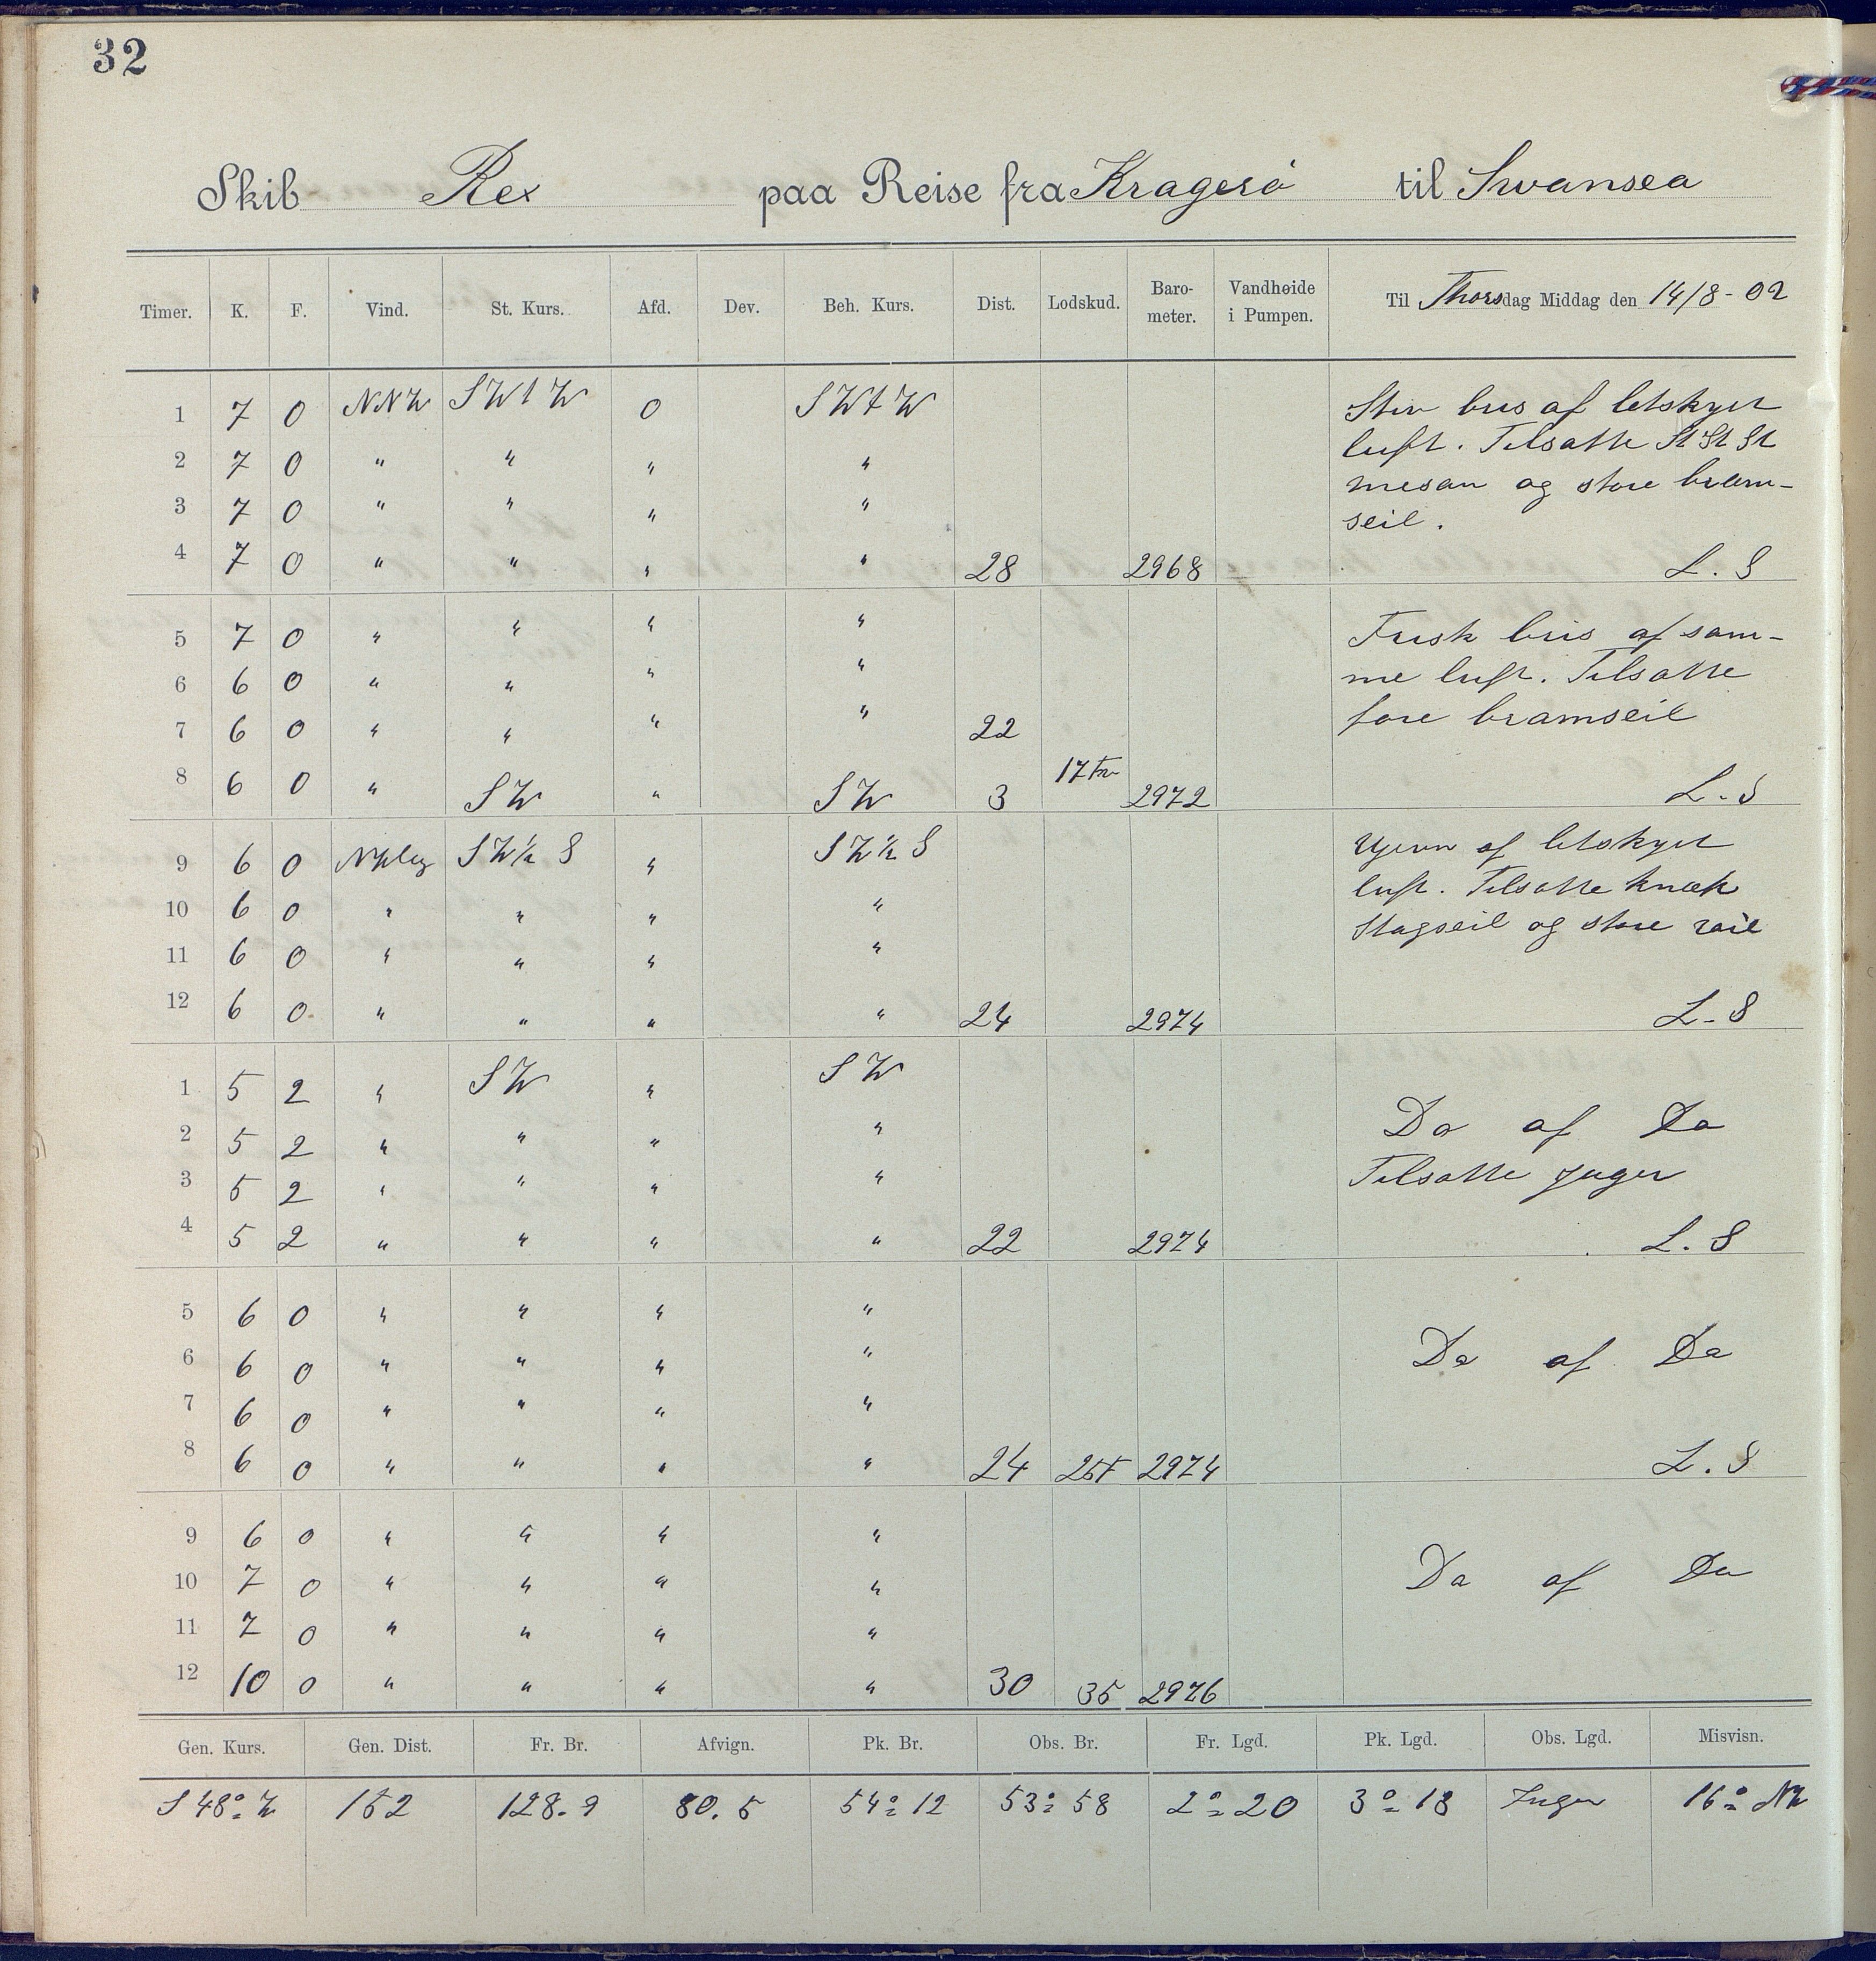 32
Skib Rex paa Reise fra Kragerö til Swansea
Timer. K. F. Vind. St. Kurs. Afd. Dev. Beh. Kurs. Dist. Lodskud. Baro-meter. Vandhøide i Pumpen. Til Thorsdag Middag den 14/8-02
1 7 0 NNW SWtW 0 SWtW Stiv bris af letskyet
2 7 0 " " " " luft. Tilsatte St St St
3 7 0 " " " " mesan og store bram-
seil.
4 7 0 " " " " 28 2968 L. S
5 7 0 " " " " Frisk bris af sam-
6 6 0 " " " " me luft. Tilsatte
7 6 0 " " " " 22 fore bramseil
8 6 0 " SW " SW 3 17 fv 2972 L-S
9 6 0 Nplig SW½S " SW½S Ujevn af letskyet
10 6 0 " " " " luft. Tilsatte knæk
11 6 0 " " " " Stagseil og store roil
12 6 0 " " " " 24 2974 L-S
1 5 2 " SW " SW
2 5 2 " " " " Do af Do
3 5 2 " " " " Tilsatte jager
4 5 2 " " " " 22 2974 L. S
5 6 0 " " " "
6 6 0 " " " " Do af Do
7 6 0 " " " "
8 6 0 " " " " 24 25f 2974 L. S
9 6 0 " " " "
10 7 0 " " " " Do af Do
11 7 0 " " " "
12 10 0 " " " " 30 35 2976
Gen. Kurs. Gen. Dist. Fr. Br. Afvign. Pk. Br. Obs. Br. Fr. Lgd. Pk. Lgd. Obs. Lgd. Misvisn.
S 48° W 152 128.9 80.5 54° 12 53° 58 2° 20 3° 18 Ingen 16° NW